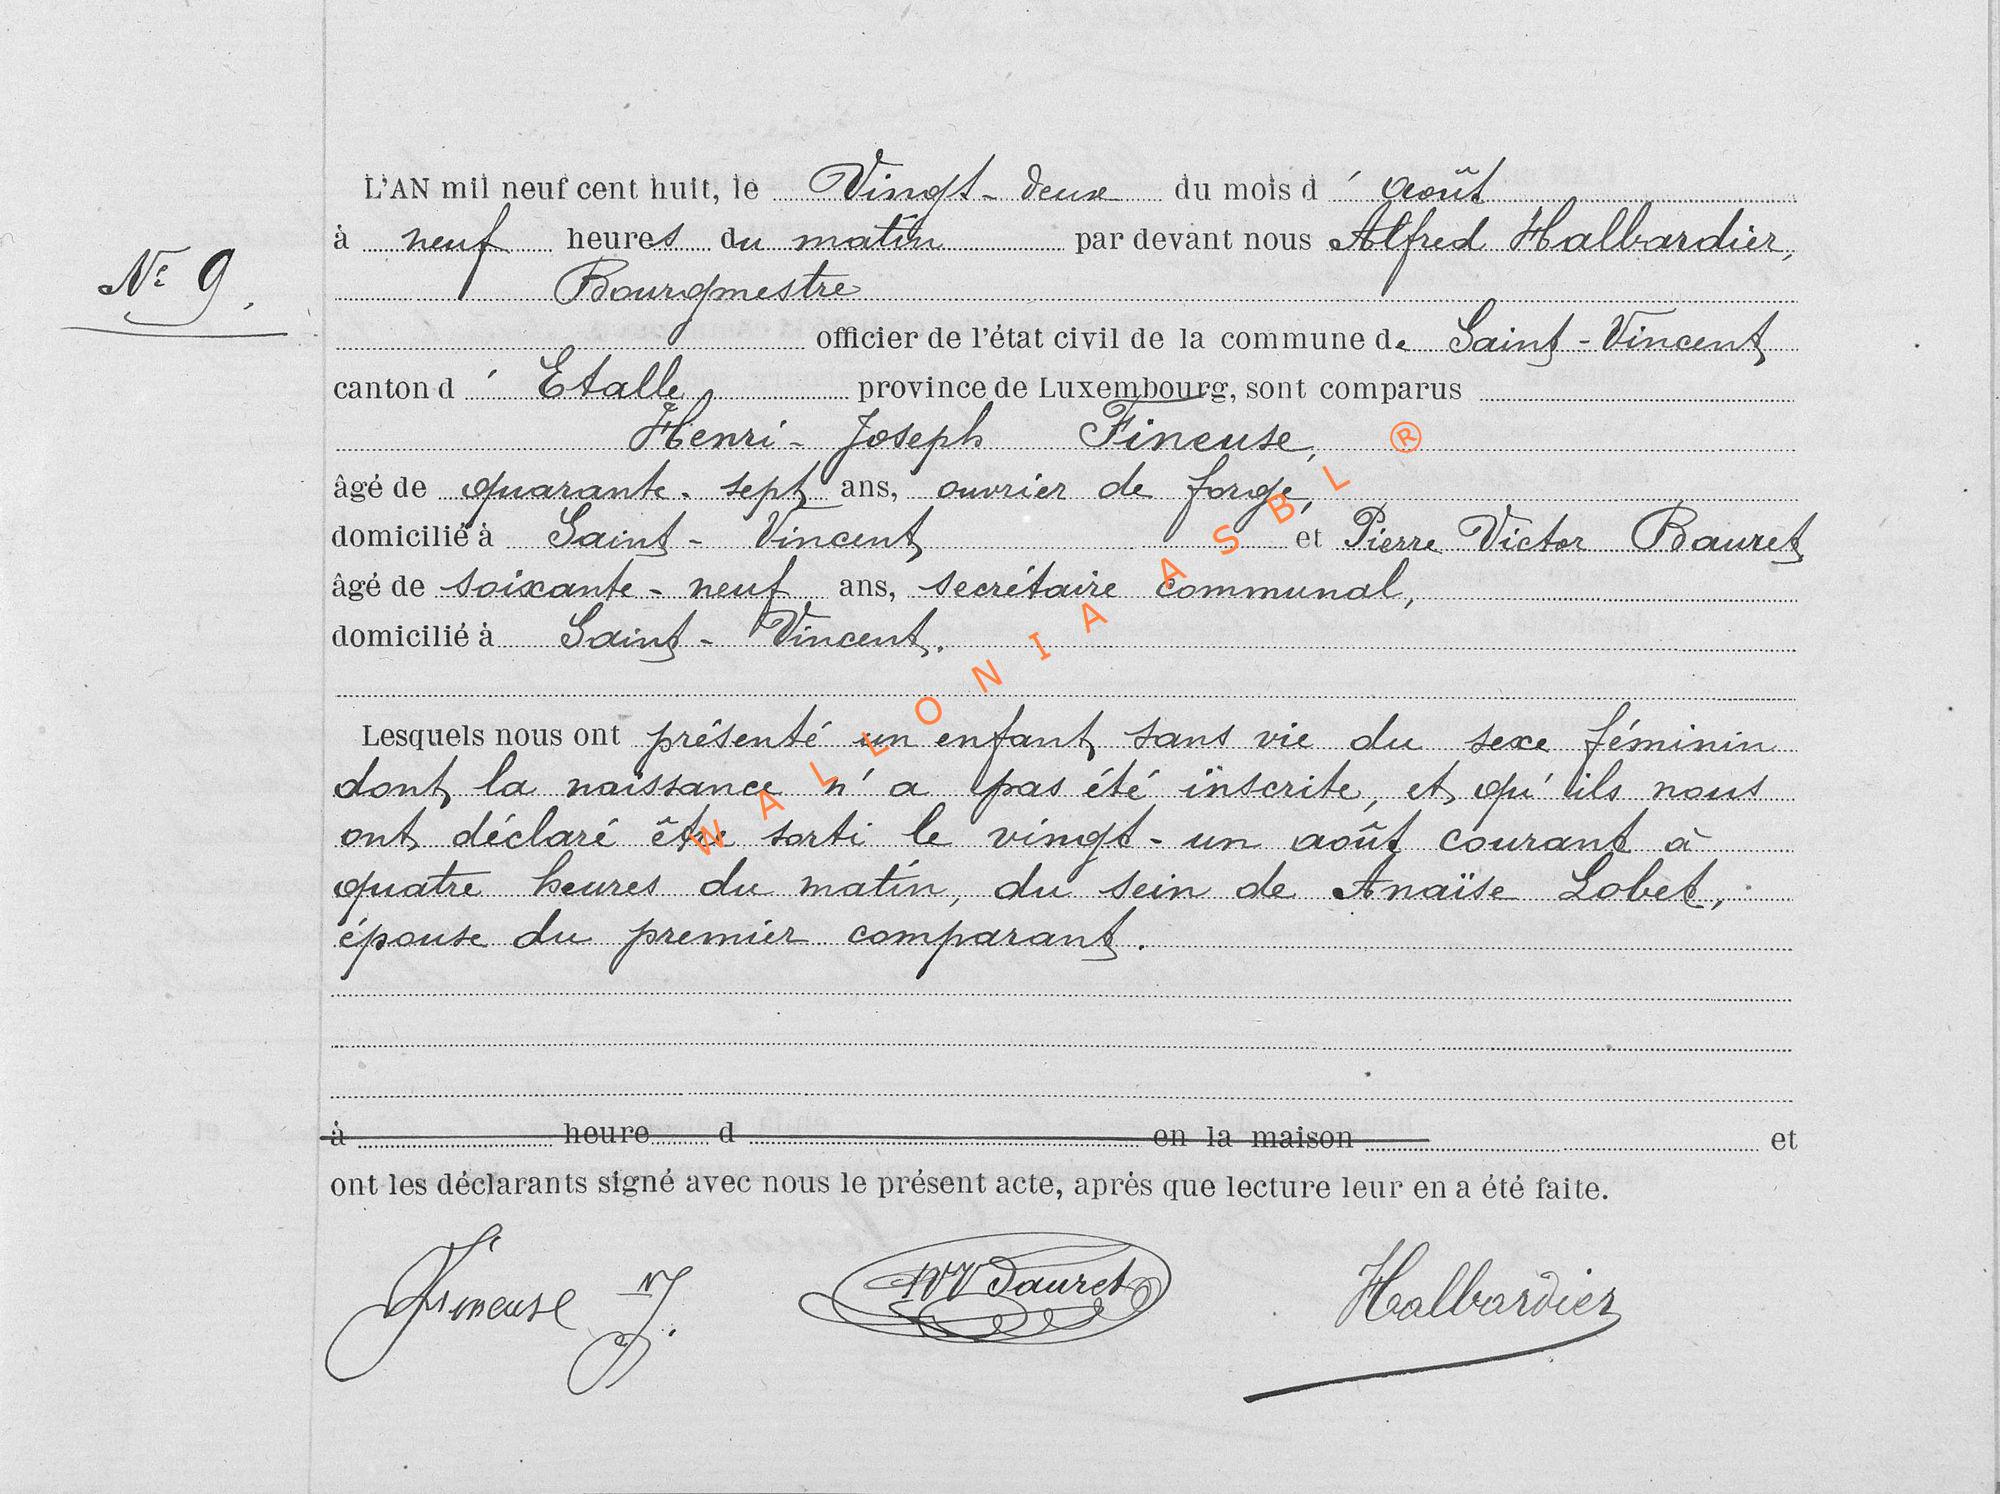 L'AN mil neuf cent huit, le Vingt-deux du mois d'août
à neuf heures du matin par devant nous Alfred Halbardier,
N° 9.
Bourgmestre
officier de l'état civil de la commune de Saint-Vincent
canton d'Etalle province de Luxembourg, sont comparus
Henri-Joseph Fineuse, ®
âgé de quarante-sept ans, ouvrier de forge,
domicilié à Saint-Vincent et Pierre Victor Bauret
âgé de soixante-neuf ans, secrétaire communal,
domicilié à Saint-Vincent.
WALLONIA ASBL
Lesquels nous ont présenté un enfant sans vie du sexe féminin
dont la naissance n'a pas été inscrite, et qu'ils nous
ont déclaré être sorti le vingt-un août courant à
quatre heures du matin, du sein de Anaïse Lobet,
épouse du premier comparant.
à heure d en la maison et
ont les déclarants signé avec nous le présent acte, après que lecture leur en a été faite.
Fineuse Bauret Halbardier